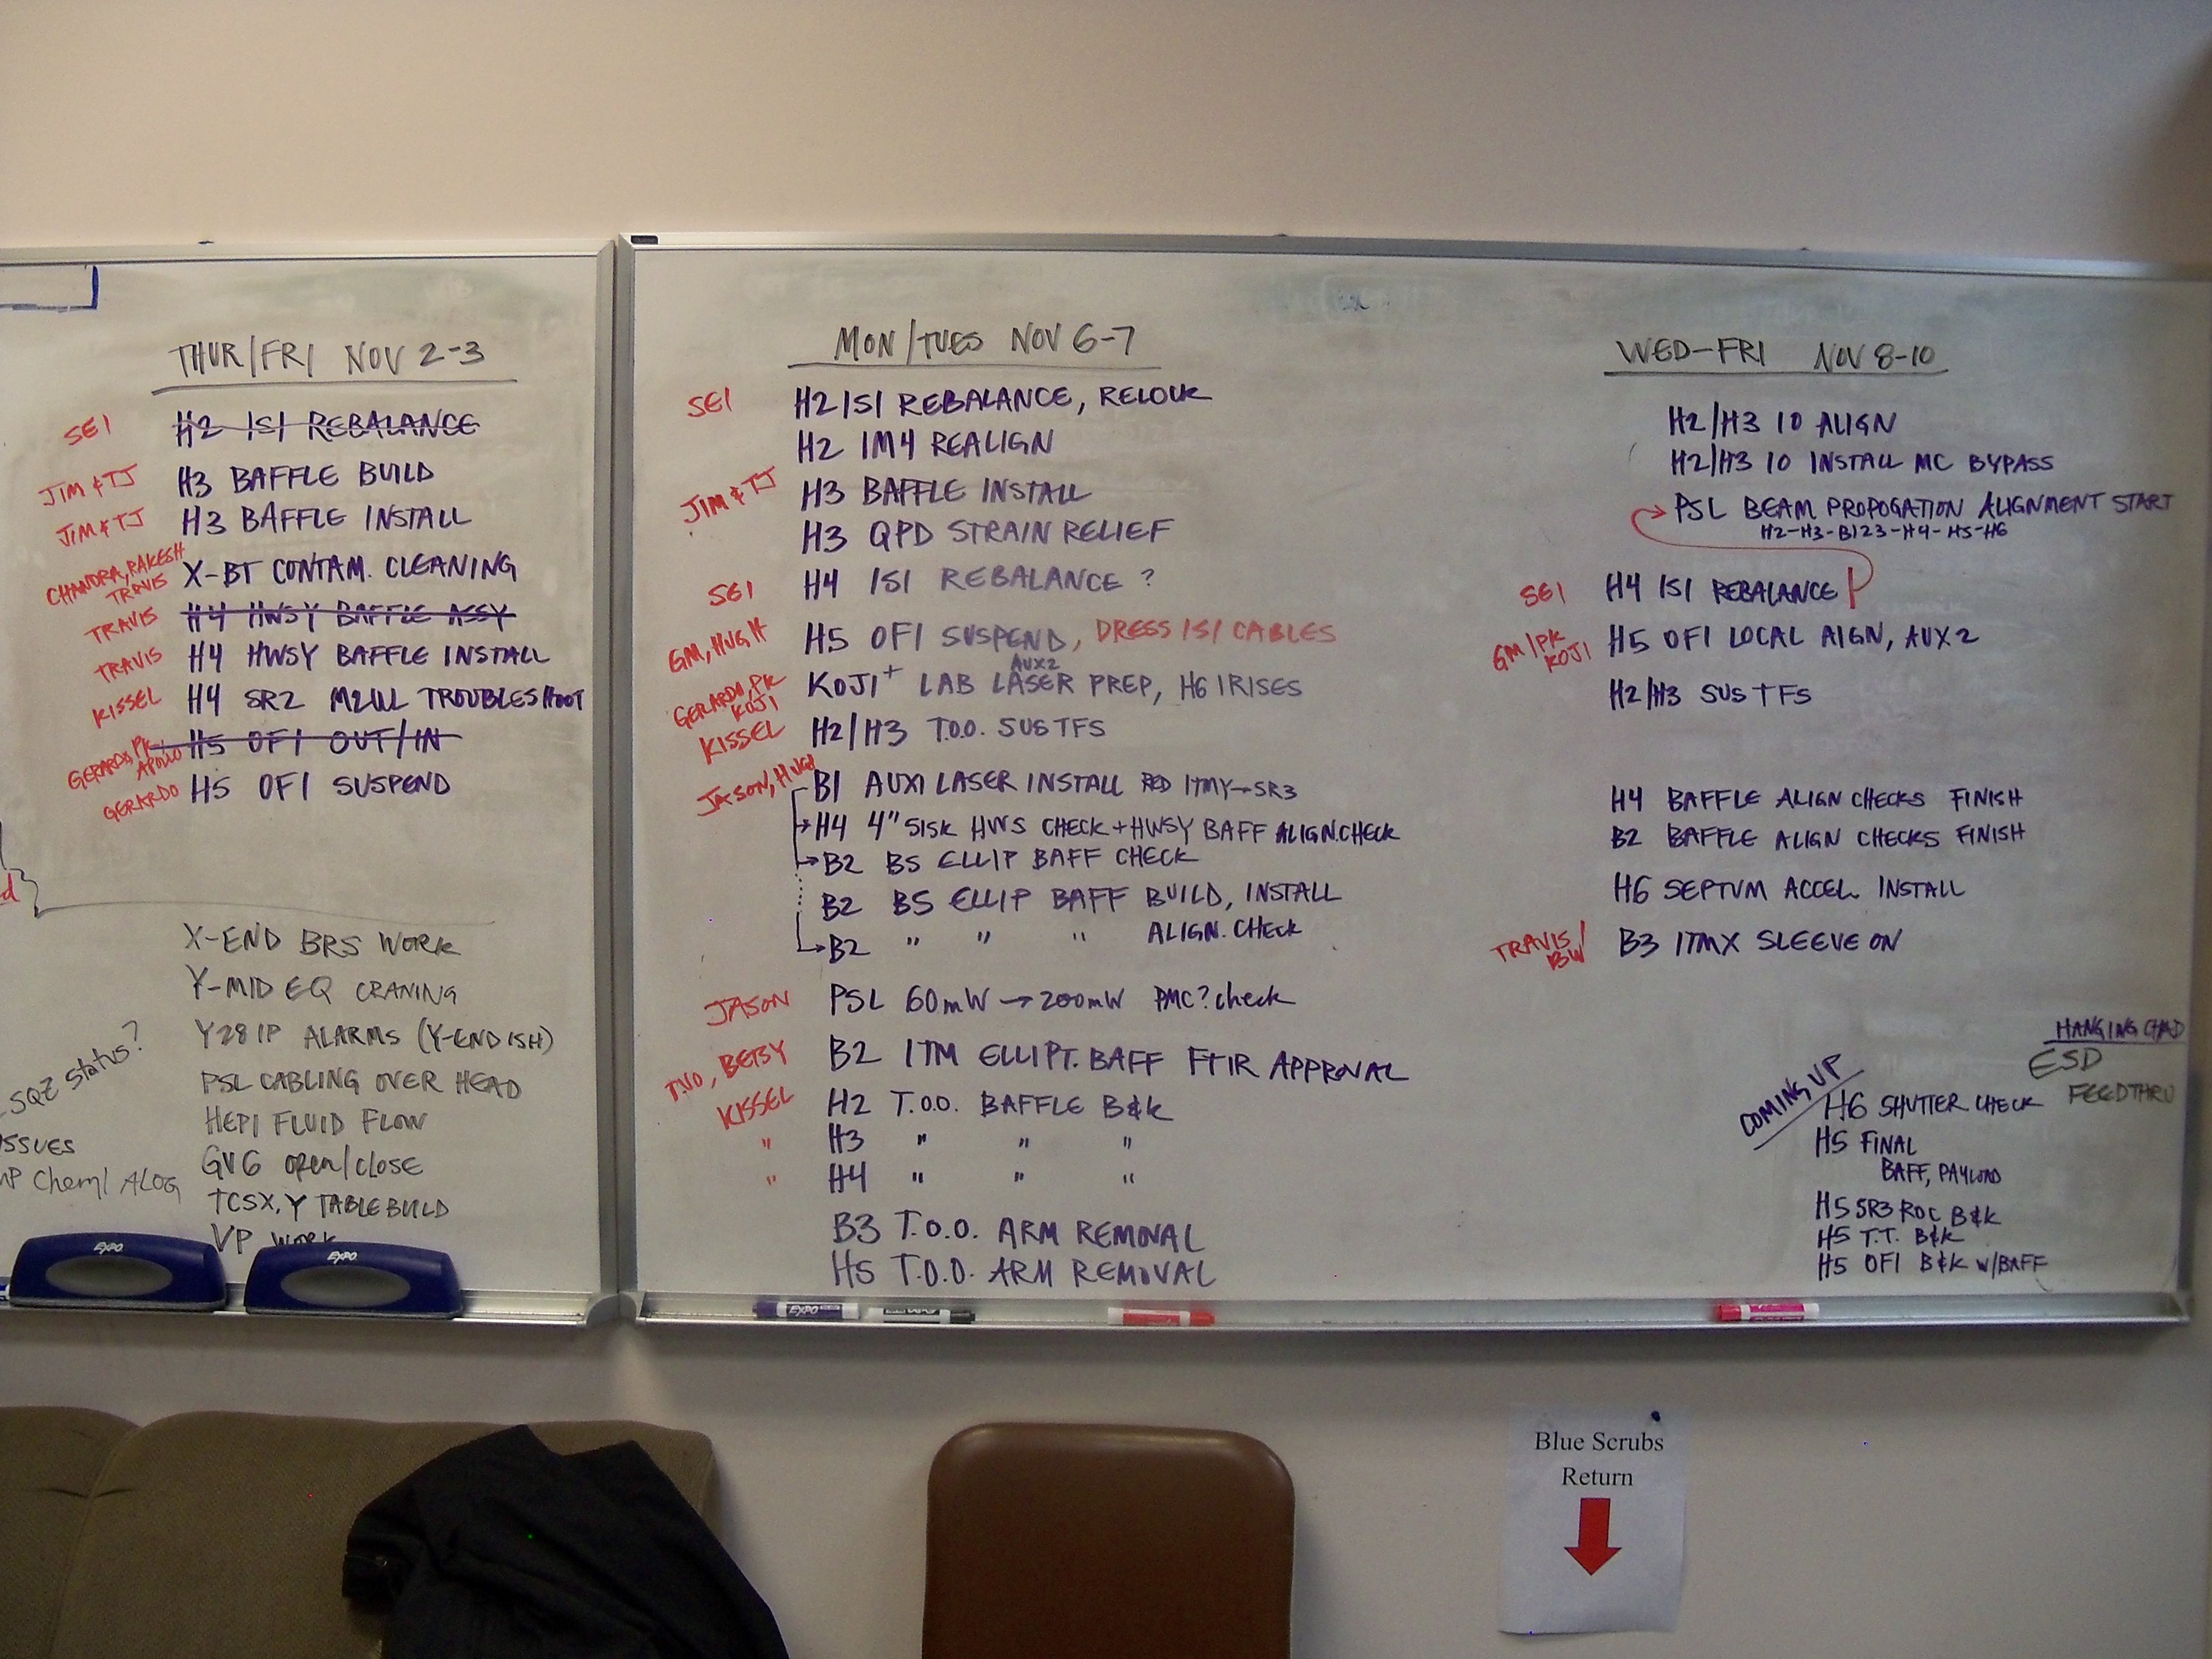 THUR/FRI NOV 2-3
SEI H2 ISI REBALANCE
JIM & TJ H3 BAFFLE BUILD
JIM & TJ H3 BAFFLE INSTALL
CHANDRA, RAKESH TRAVIS X-BT CONTAM. CLEANING
TRAVIS H4 HWSY BAFFLE ASSY
TRAVIS H4 HWSY BAFFLE INSTALL
KISSEL H4 SR2 TROUBLESHOOT
GERARDO, PK, APOLLO H5 OFI OUT/IN
GERARDO H5 OFI SUSPEND
X-END BRS WORK
Y-MID EQ CRANING
Y28 IP ALARMS (Y-END ISH)
PSL CABLING OVER HEAD
HEPI FLUID FLOW
GV6 open/close
TCSX, Y TABLE BUILD
VP WORK
SQZ status?
ISSUES
ALOG
EXPO
EXPO
MON/TUES NOV 6-7
SEI H2 ISI REBALANCE, RELOCK
H2 IM4 REALIGN
JIM & TJ H3 BAFFLE INSTALL
H3 QPD STRAIN RELIEF
SEI H4 ISI REBALANCE ?
GM, HUGH H5 OFI SUSPEND, DRESS ISI CABLES
AUX2
GERARDO, PK KOJI KOJI + LAB LASER PREP, H6 IRISES
KISSEL H2/H3 T.O.O. SUS TFS
JASON, HUGH B1 AUX1 LASER INSTALL RED ITMY→SR3
H4 4" SISK HWS CHECK + HWSY BAFF ALIGN. CHECK
B2 BS ELLIP BAFF CHECK
B2 BS ELLIP BAFF BUILD, INSTALL
B2 " " " ALIGN. CHECK
JASON PSL 60mW → 200mW PMC? check
TVO, BETSY B2 ITM ELLIPT. BAFF FTIR APPROVAL
KISSEL H2 T.O.O. BAFFLE B&K
" H3 " " "
" H4 " " "
B3 T.O.O. ARM REMOVAL
H5 T.O.O. ARM REMOVAL
EXPO
WED-FRI NOV 8-10
H2/H3 IO ALIGN
H2/H3 IO INSTALL MC BYPASS
PSL BEAM PROPOGATION ALIGNMENT START
H2-H3-B123-H4-H5-H6
SEI H4 ISI REBALANCE
GM/PK KOJI H5 OFI LOCAL AIGN, AUX 2
H2/H3 SUS TFS
H4 BAFFLE ALIGN CHECKS FINISH
B2 BAFFLE ALIGN CHECKS FINISH
H6 SEPTUM ACCEL. INSTALL
TRAVIS/ BW B3 ITMX SLEEVE ON
HANGING CHAD
ESD
FEEDTHRU
COMING UP
H6 SHUTTER CHECK
H5 FINAL
BAFF, PAYLOAD
H5 SR3 ROC B&K
H5 T.T. B&K
H5 OFI B&K W/BAFF
Blue Scrubs
Return